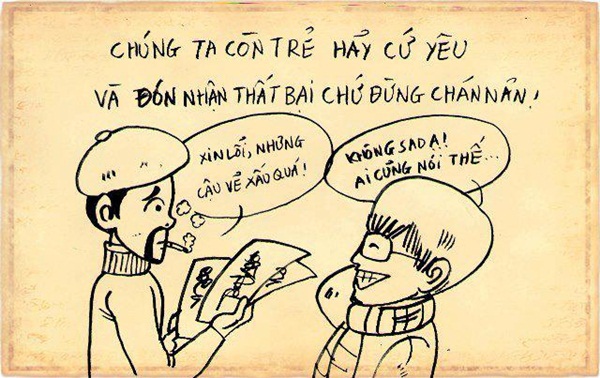 CHÚNG TA CÒN TRẺ HẨY CỨ YÊU
VÀ ĐÓN NHẬN THẤT BẠI CHỨ ĐỪNG CHÁN NẢN!
XIN LỖI, NHƯNG
CẬU VẼ XẤU QUÁ!
KHÔNG SAO Ạ!
AI CŨNG NÓI THẾ...